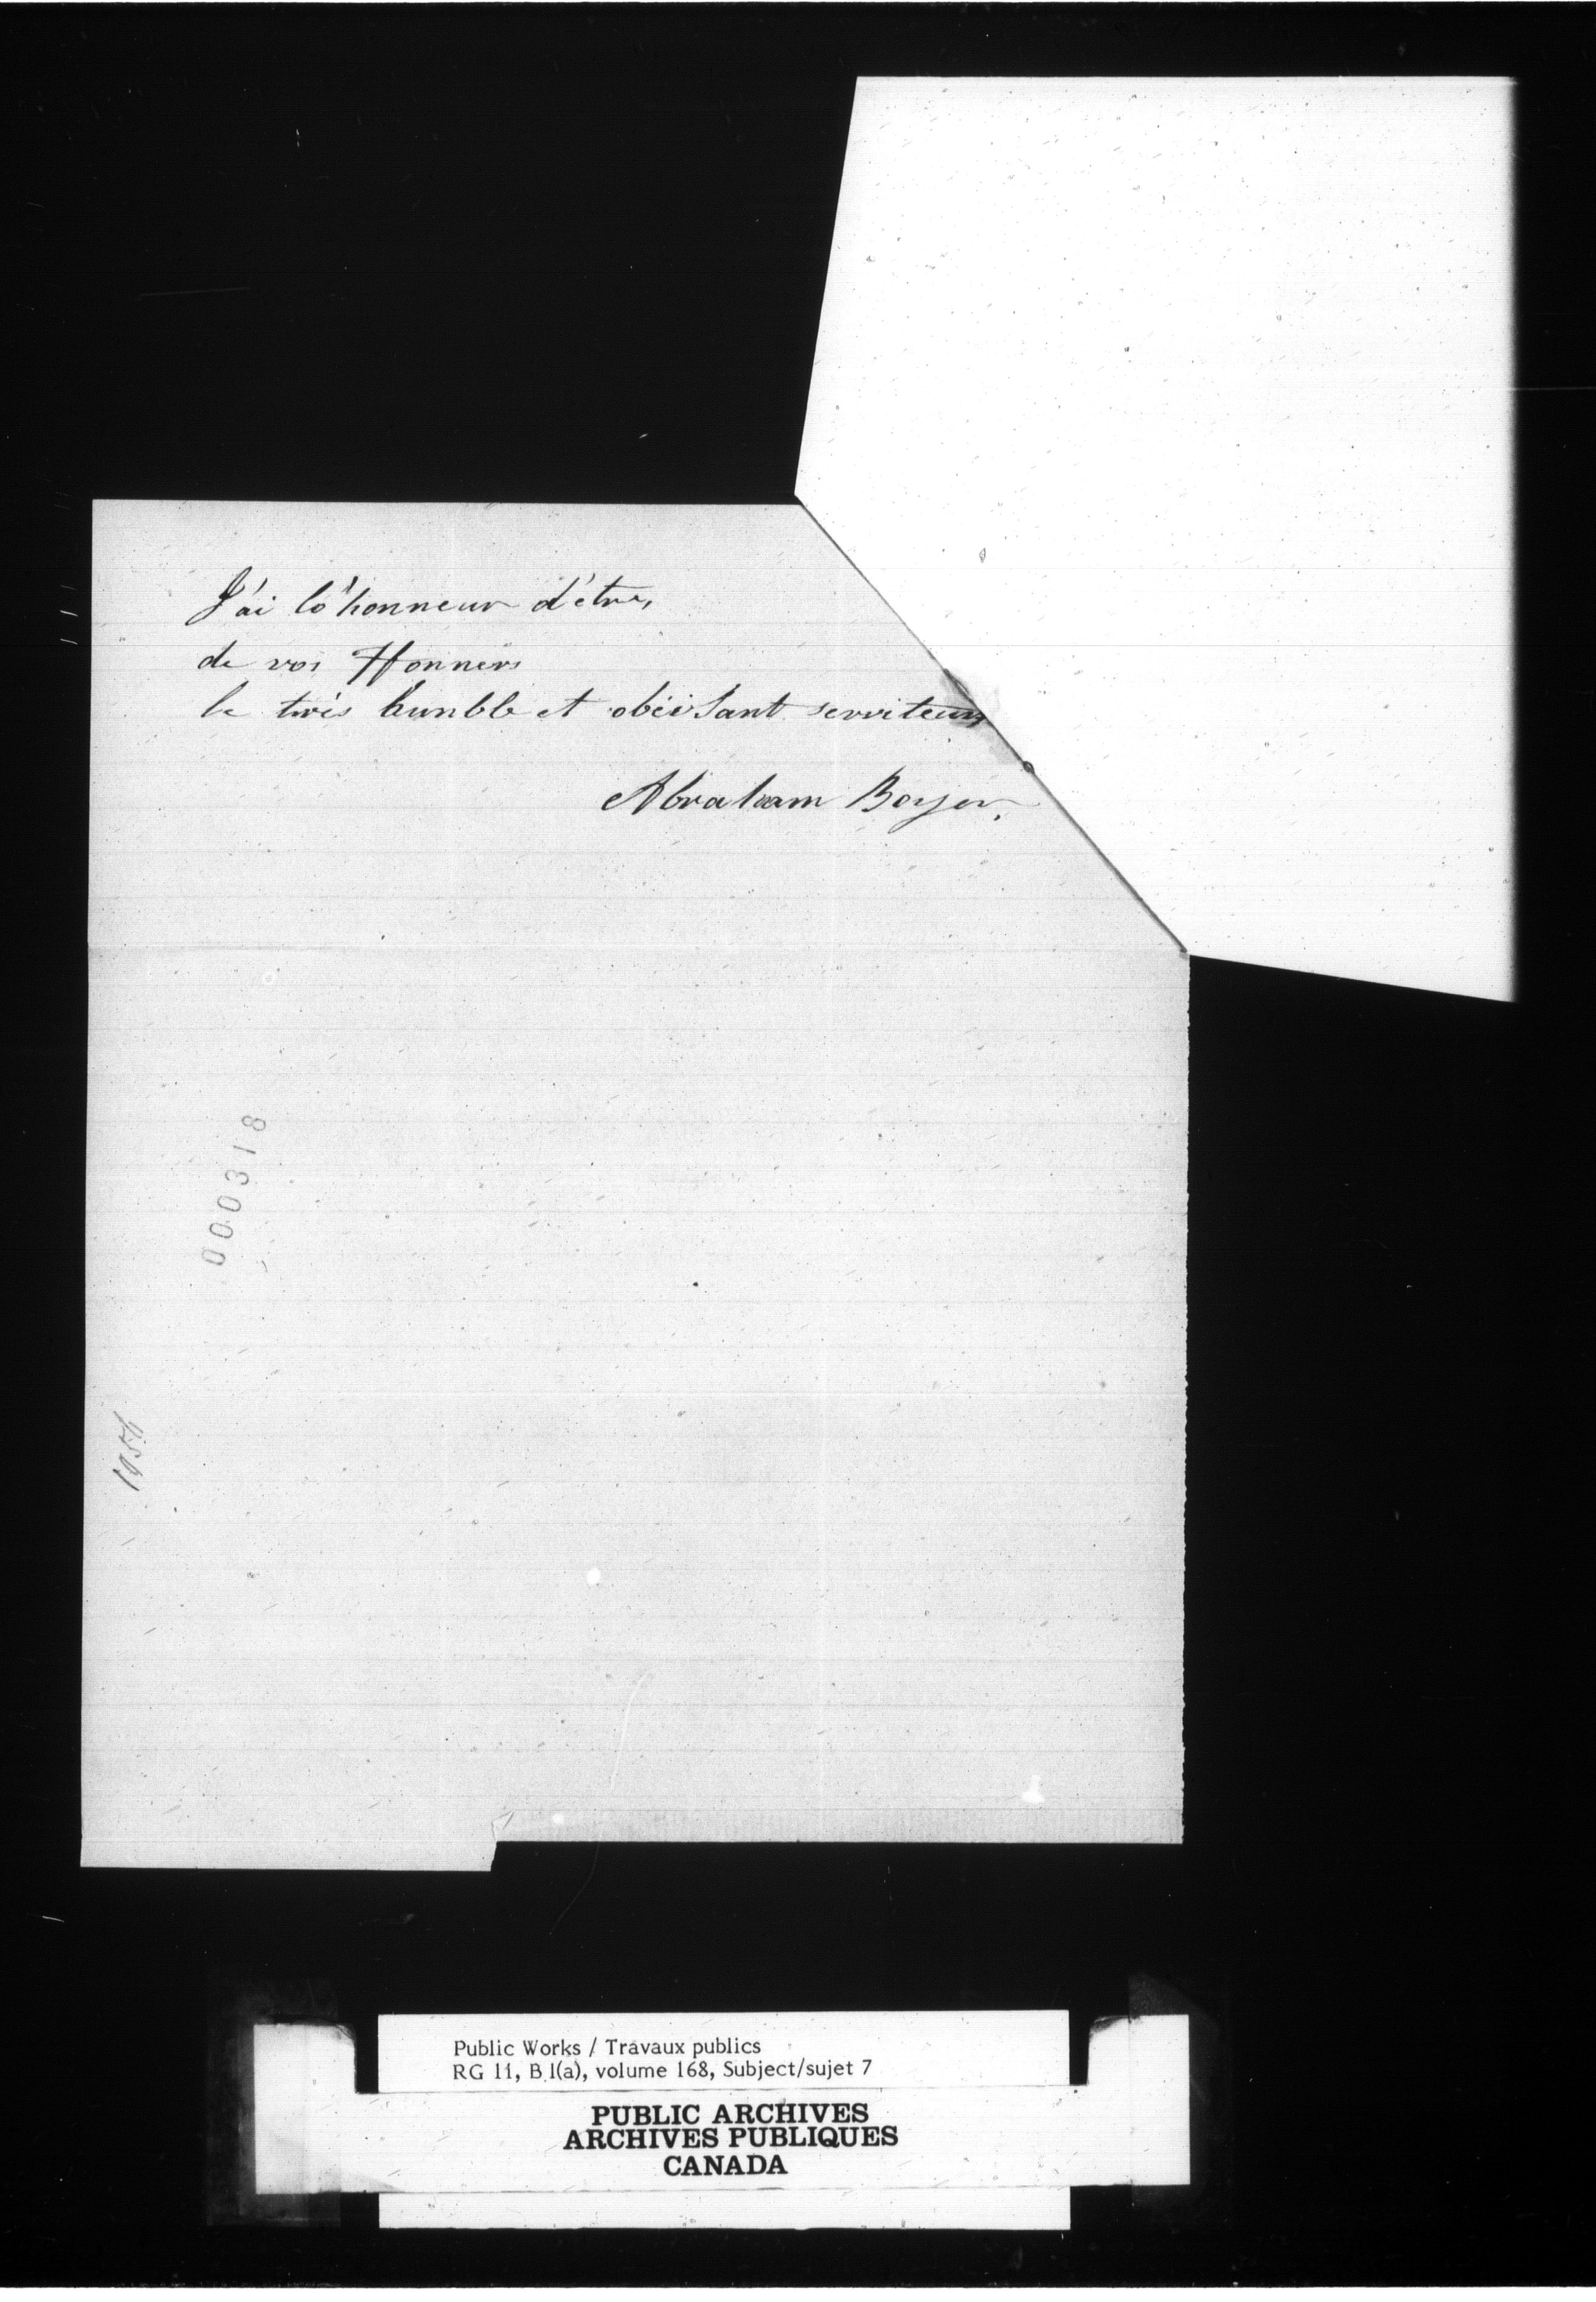 J'ai lo'honneur d'être,
de vos Honners
le très humble et obéisant serviteur
Abraham Boyer.
000318
Public Works / Travaux publics
RG 11, B 1(a), volume 168, Subject/sujet 7
PUBLIC ARCHIVES
ARCHIVES PUBLIQUES
CANADA